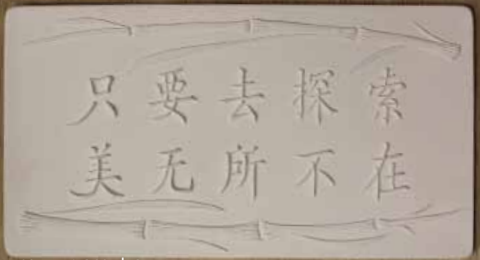 只要去探索
美无所不在